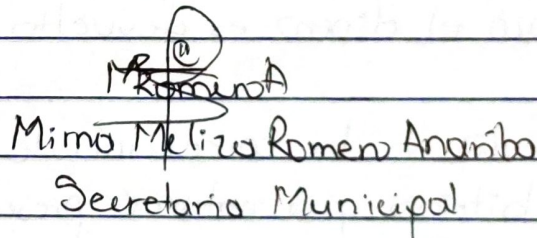 MRomeroA
Mirna Meliza Romero Anariba
Secretaria Municipal